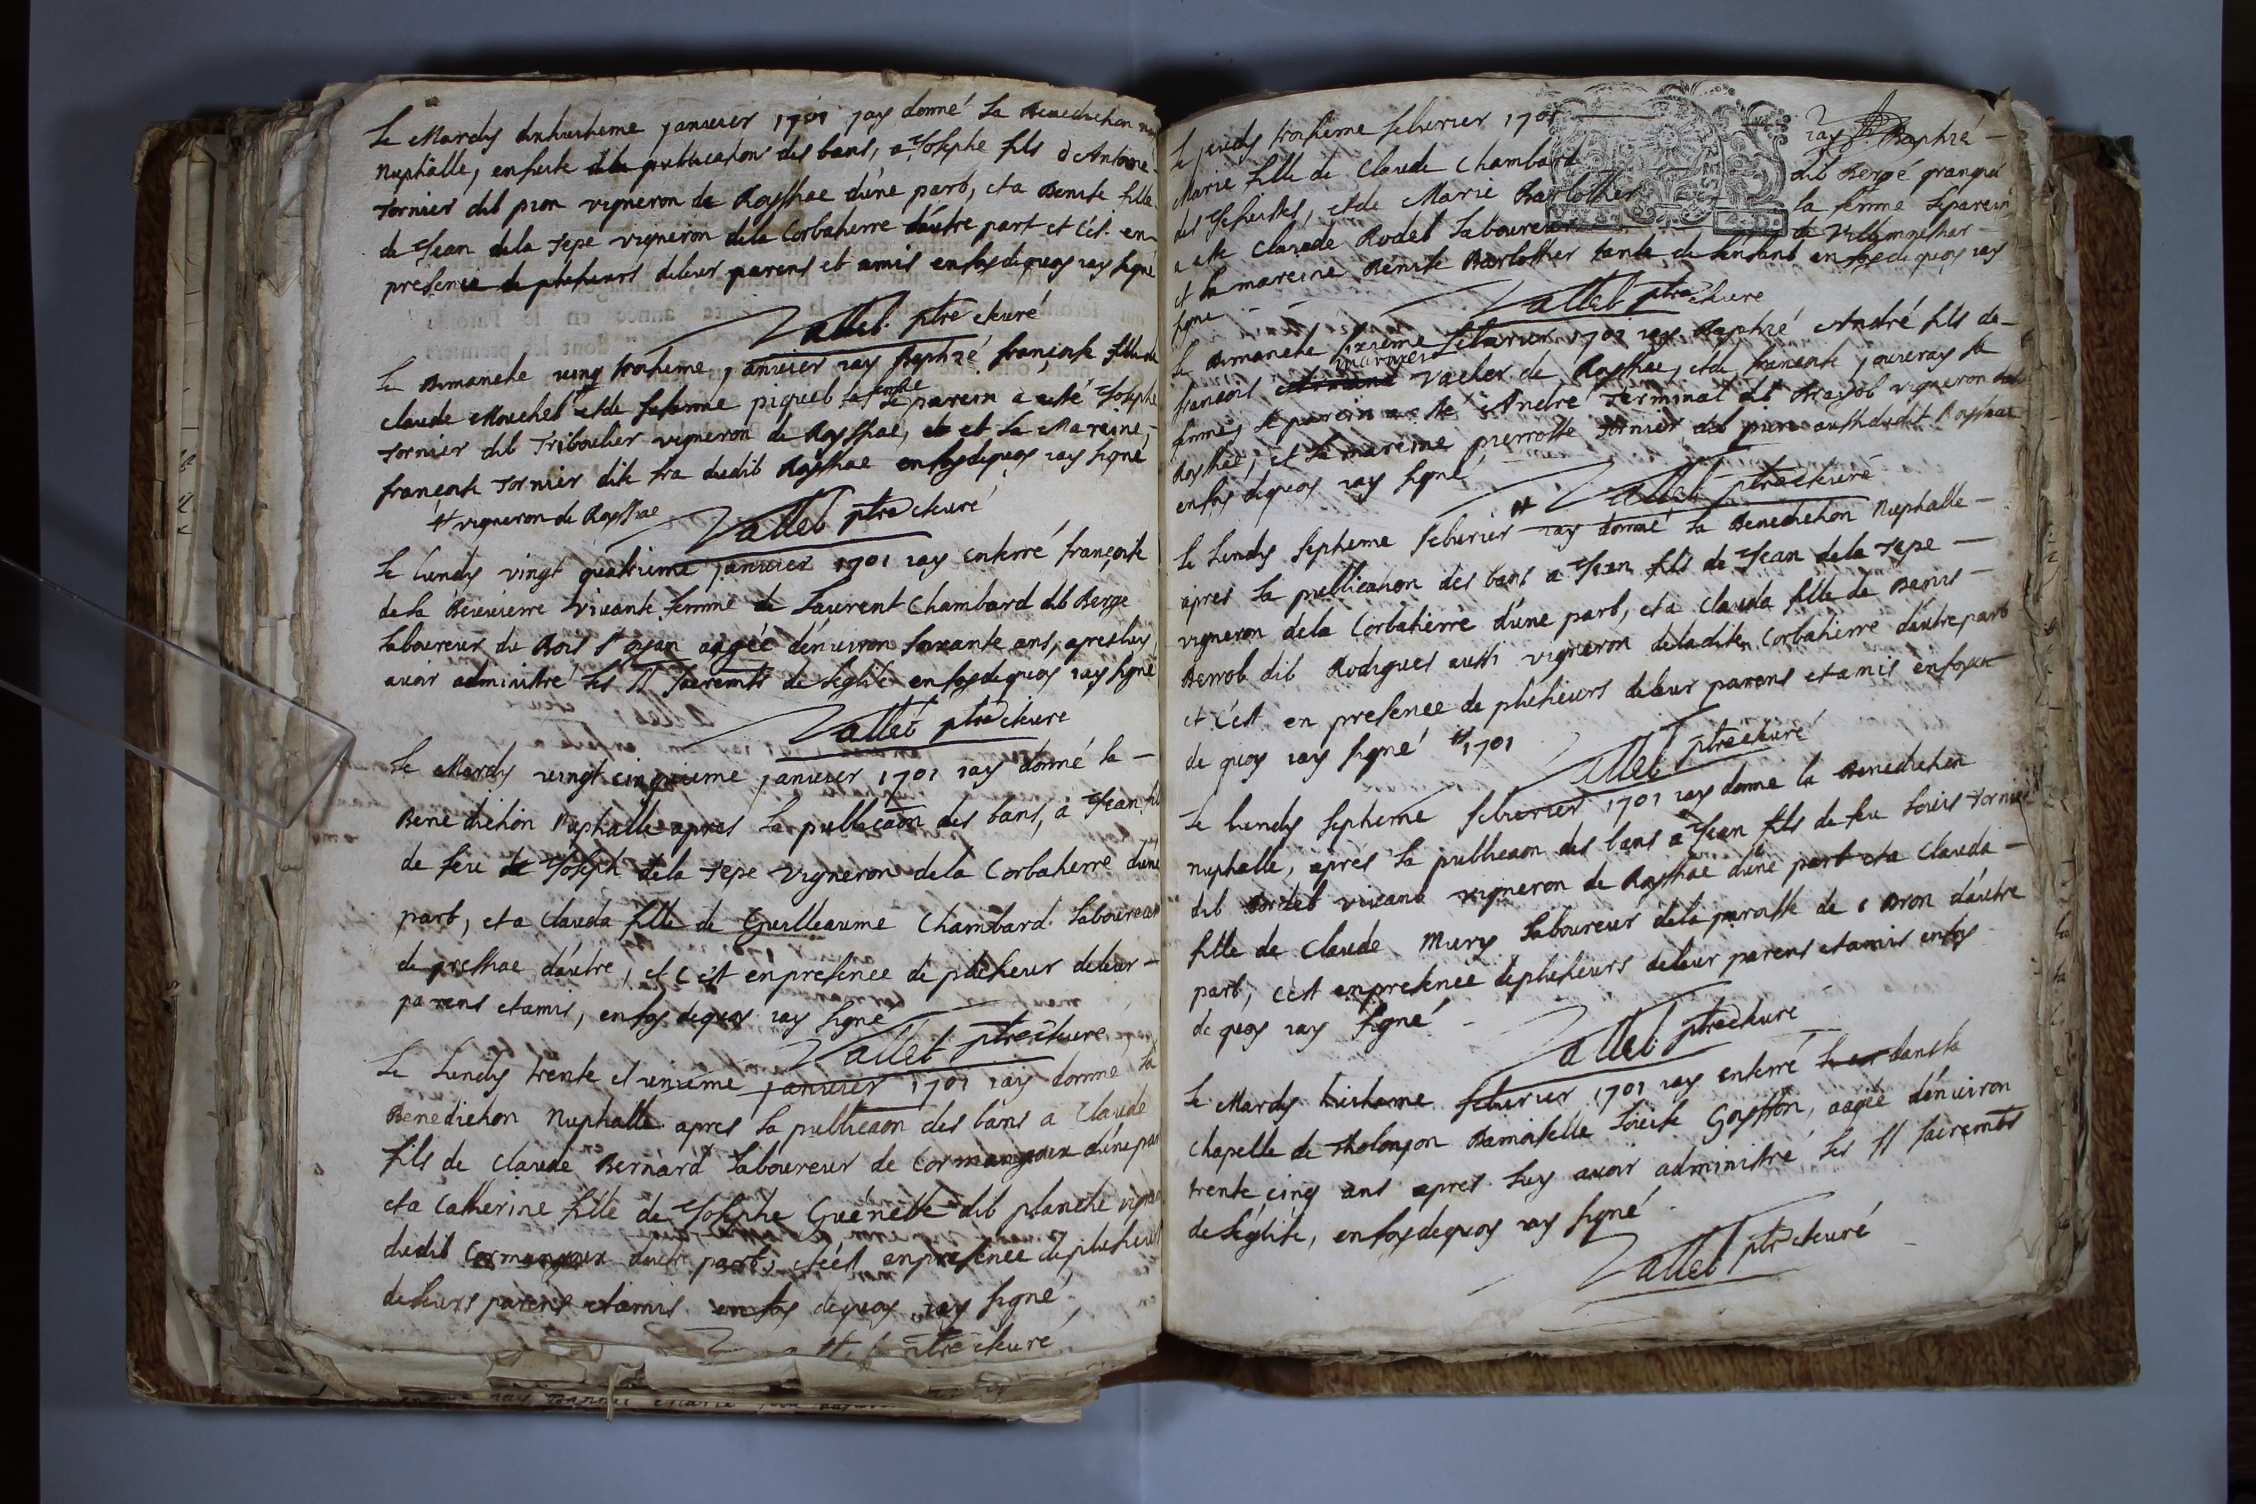 Le Mardy dixhuitieme janvier 1701 jay donné la Benediction
nuptialle, ensuite publications des bans, a Josephe fils d'Antoine
Tornier dit pion vigneron de Roissiac d'une part, et a Benoite fille
de Jean dela Tepe vigneron dela Corbatierre d'autre part et c'est en
presence de plusieurs deleur parens et amis enfoydequoy jay signé
Vallet ptre curé
Le Dimanche ving troisieme janvier jay Baptizé françoise fille de
claude Mouchet et de piquet sa femme le parein a esté Joseph
Tornier dit Triboulier vigneron de Royssiac, et la Mareine
françoise Tornier dite fra dudit Royssiac enfoydequoy jay signé
# vigneron de Royssiac
Vallet ptre curé
Le lundy vingt quatrieme janvier 1701 jay enterré françoise
de la Beuvierre vivante femme de Laurent Chambard dit Berge
laboureur du Bois st oyan aagée d'environ soixante ans, apres luy
avoir administré les SS sacremts de l'eglise enfoydequoy jay signé
Vallet ptre curé
Le Mardy vingt cinquieme janvier 1701 jay donné la
Benediction Nuptialle apres la publicaon des bans, a Jean fils
de feu Joseph dela Tepe vigneron dela Corbatierre d'une
part, et a Clauda fille de Guilleaume Chambard laboureur
de pressiac d'autre, et c'est enpresence de plusieur deleur
parens et amis, enfoy dequoy jay signé
Vallet ptre curé
Le Lundy trente et unieme janvier 1701 jay donné la
Benediction Nuptialle apres la publicaon des bans a Claude
fils de Claude Bernard laboureur de Cormangoux d'une part
et a Catherine fille de Josephe Guenette dit planche
dudit Cormangoux dautre part, et c'est enpresence deplusieurs
de leurs parens et amis enfoy dequoy jay signé
ptre curé
Le jeudy troisieme febvrier 1701 jay Baptizé
Marie fille de Claude Chambard dit Bergé granger
des Jesuistes, et de Marie Barlottier sa femme le parein
a esté Claude Rodet laboureur de
et la mareine Benoite Barlottier tante de l'enfant enfoydequoy jay
signé
Vallet ptre curé
Le Dimanche sixieme febvrier 1701 jay Baptizé André fils de
françois Vacher de Royssiac, et de francoise sa
femme, le parein a esté André Terminal dit vigneron
Royssiac, et la mareine pierrotte Tornier dit pion aussi dudit Royssiac
enfoy dequoy jay signé
Vallet ptre curé
Le Lundy septieme febvrier # jay donné la Benediction Nuptialle
apres la publication des bans a Jean fils de Jean dela Tepe
vigneron dela Corbatierre d'une part, et a Clauda fille de Denis
Berrod dit Rodigues aussi vigneron deladite Corbatierre d'autre part
et c'est en presence de plusieurs deleur parens et amis enfoy
de quoy jay signé # 1701
Vallet ptre curé
Le Lundy septieme febvrier 1701 jay donne la Benediction
nuptialle, après la publicaon des bans a Jean fils de feu Louis Tornier
dit vivant vigneron de Royssiac d'une part et a Clauda
fille de Claude Mury laboureur dela paroisse de d'autre
part, c'est enpresence deplusieurs deleur parens et amis enfoy
de quoy jay signé
Vallet ptre curé
Le Mardy huitieme febvrier 1701 jay enterré dans la
chapelle de Tholonjon Damoiselle Louise Goyffon, aagée d'environ
trente cinq ans apres luy avoir administré les SS sacremts
de l'église, enfoydequoy jay signé
Vallet ptre curé